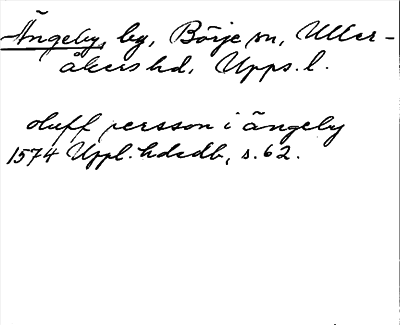 Ängeby, by, Börje sn, Uller-
åkers hd, Upps. l.
oluff persson i ängeby
1574 Uppl. hdsdb, s. 62.